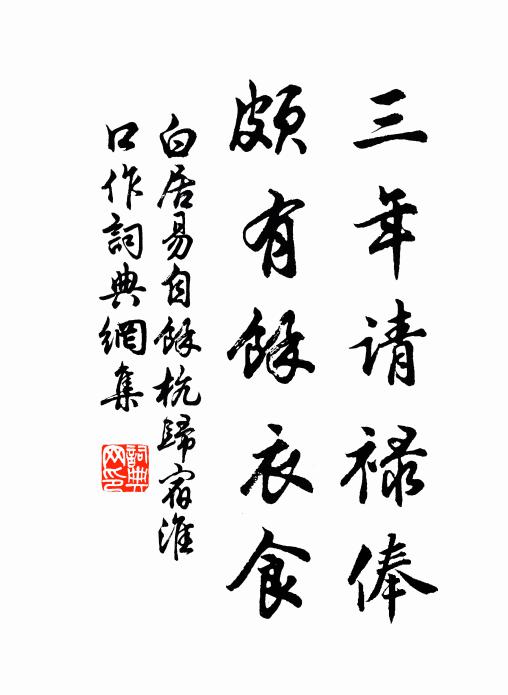 三年请禄俸
颇有餘衣食
白居易自餘杭歸宿淮
口作詞典網集
詞典
网印